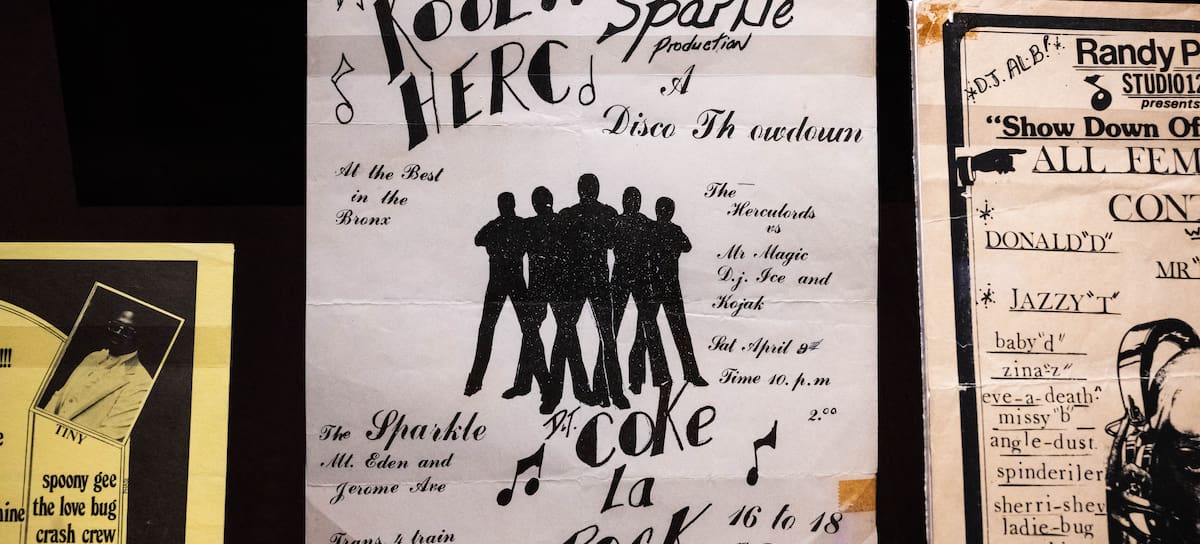 !!!
TINY
spoony gee
the love bug
crash crew
Sparkle
Production
HERC
A
Disco Th owdown
At the Best
in the
Bronx
The
Herculords
vs
Mr Magic
D.j. Ice and
Kojak
Sat April
Time 10. p.m
2.00
The Sparkle
Mt. Eden and
Jerome Ave
D.J.
COKE
La
ROCK
16 to 18
Trans 4 train
*D.J. AL-B.*
Randy P
STUDIO12
presents
"Show Down Of
ALL FEM
CON
DONALD"D"
MR"
JAZZY"T"
baby"d"
zina"z"
eve-a-death
missy"b"
angle-dust
spinderiler
sherri-shey
ladie-bug